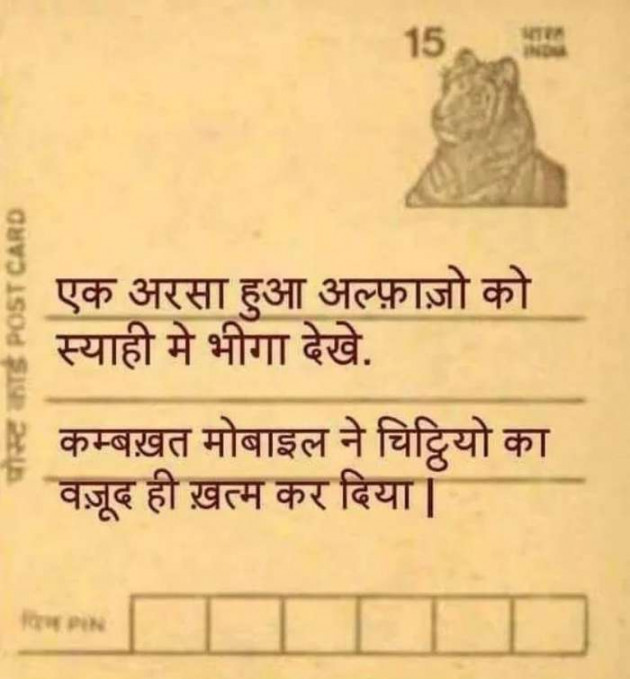 15
भारत
INDIA
पोस्ट कार्ड POST CARD
एक अरसा हुआ अल्फ़ाज़ो को
स्याही मे भीगा देखे.
कम्बख़त मोबाइल ने चिट्ठियो का
वज़ूद ही ख़त्म कर दिया |
पिन PIN